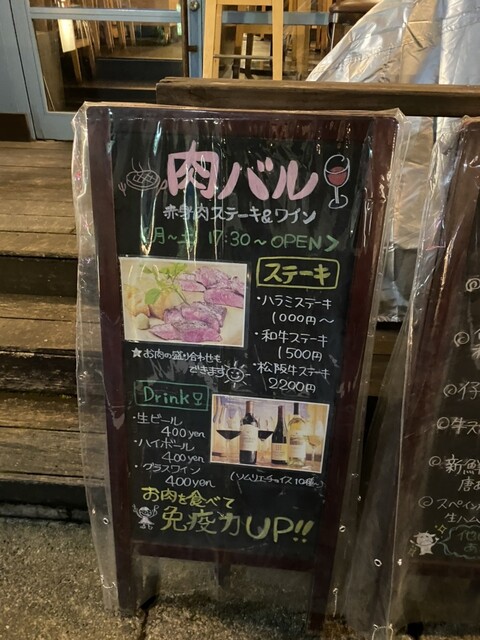 肉バル
赤身肉ステーキ&ワイン
月〜土 17:30〜OPEN>
ステーキ
・ハラミステーキ
1000円〜
・和牛ステーキ
1500円
・松阪牛ステーキ
2200円
★お肉の盛り合わせも
できます
Drink
・生ビール
400yen
・ハイボール
400yen
・グラスワイン
400yen
(ソムリエチョイス10種〜)
お肉を食べて
免疫力UP!!
牛ス
新鮮
スペイン
生ハム